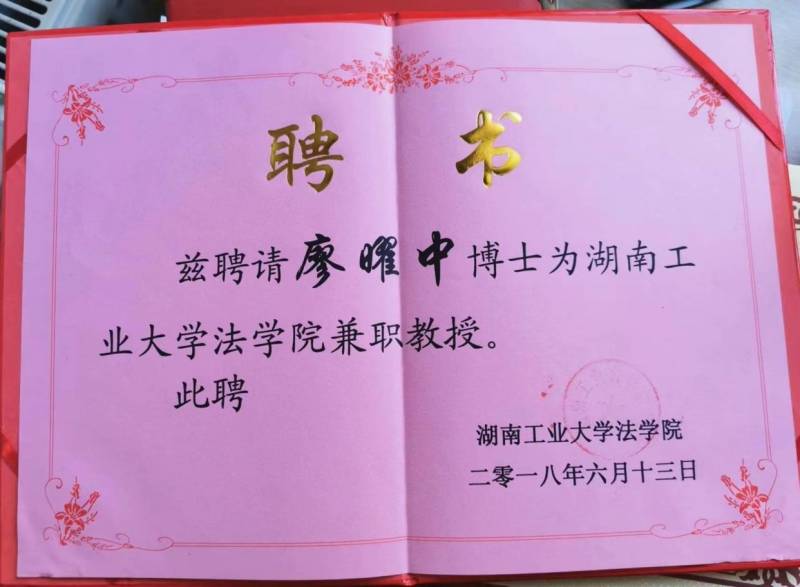 聘书
兹聘请廖曜中博士为湖南工
业大学法学院兼职教授。
此聘
湖南工业大学法学院
二零一八年六月十三日